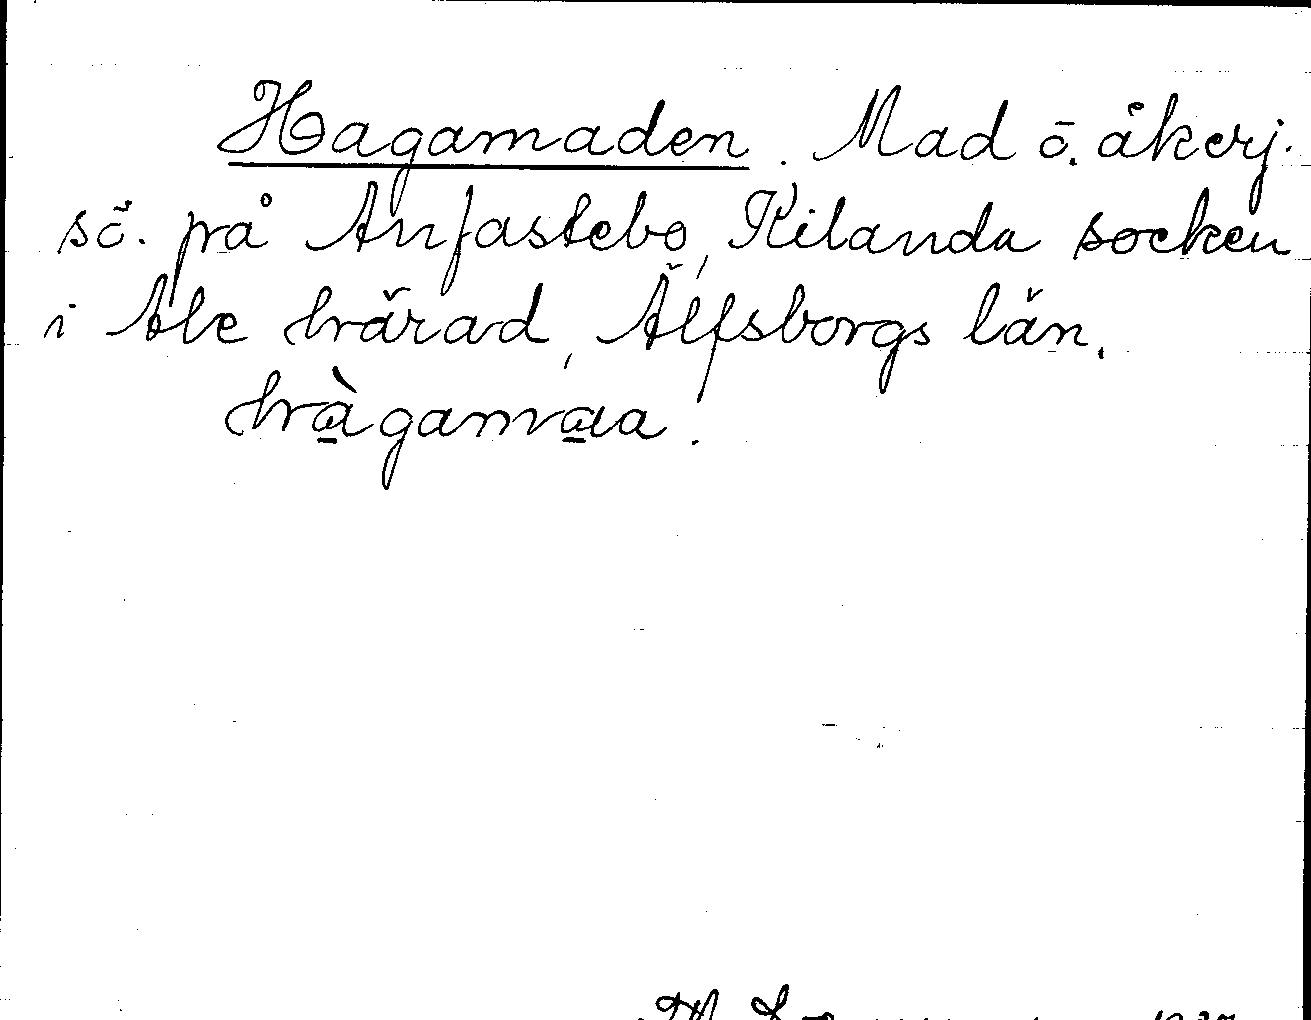 Hagamaden. Mad ō. åkerj.
sö. på Anfastebo, Kilanda socken
i Ale härad, Älfsborgs län.
hàgamaa.